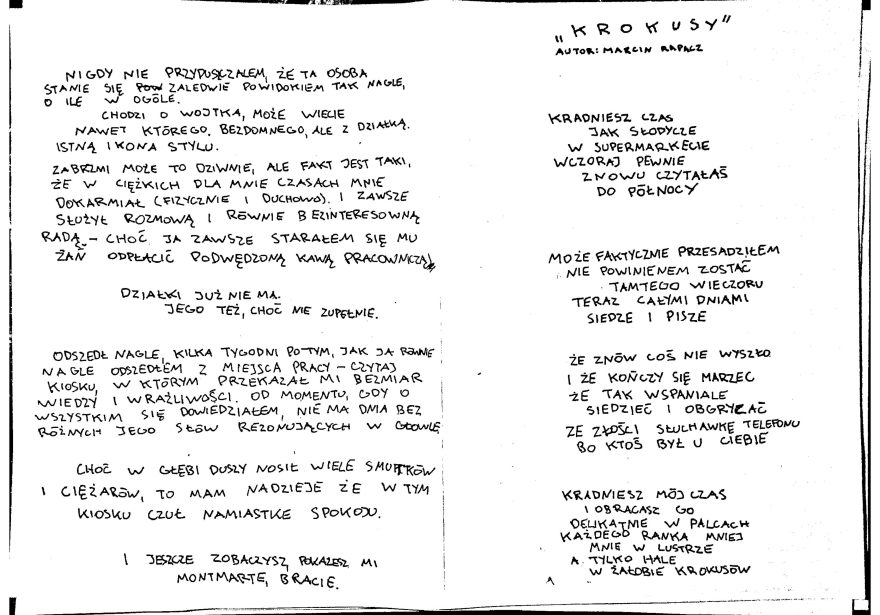 NIGDY NIE PRZYPUSZCZAŁEM, ŻE TA OSOBA
STANIE SIĘ ZALEDWIE POWIDOKIEM TAK NAGLE,
O ILE W OGÓLE.
CHODZI O WOJTKA, MOŻE WIECIE
NAWET KTÓREGO. BEZDOMNEGO, ALE Z DZIAŁKĄ.
ISTNA IKONA STYLU.
ZABRZMI MOŻE TO DZIWNIE, ALE FAKT JEST TAKI,
ŻE W CIĘŻKICH DLA MNIE CZASACH MNIE
DOKARMIAŁ (FIZYCZNIE I DUCHOWO). I ZAWSZE
SŁUŻYŁ ROZMOWĄ I RÓWNIE BEZINTERESOWNĄ
RADĄ – CHOĆ JA ZAWSZE STARAŁEM SIĘ MU
ZAŃ ODPŁACIĆ PODWĘDZONĄ KAWĄ PRACOWNICZĄ
DZIAŁKI JUŻ NIE MA.
JEGO TEŻ, CHOĆ NIE ZUPEŁNIE.
ODSZEDŁ NAGLE, KILKA TYGODNI PO TYM, JAK JA RÓWNIE
NAGLE ODSZEDŁEM Z MIEJSCA PRACY – CZYTAJ
KIOSKU, W KTÓRYM PRZEKAZAŁ MI BEZMIAR
WIEDZY I WRAŻLIWOŚCI. OD MOMENTU, GDY O
WSZYSTKIM SIĘ DOWIEDZIAŁEM, NIE MA DNIA BEZ
RÓŻNYCH JEGO SŁÓW REZONUJĄCYCH W GŁOWIE
CHOĆ W GŁĘBI DUSZY NOSIŁ WIELE SMUTKÓW
I CIĘŻARÓW, TO MAM NADZIEJE ŻE W TYM
KIOSKU CZUŁ NAMIASTKE SPOKOJU.
I JESZCZE ZOBACZYSZ, POKAŻESZ MI
MONTMARTE, BRACIE.
"KROKUSY"
AUTOR: MARCIN RAPACZ
KRADNIESZ CZAS
JAK SŁODYCZE
W SUPERMARKECIE
WCZORAJ PEWNIE
ZNOWU CZYTAŁAŚ
DO PÓŁNOCY
MOŻE FAKTYCZNIE PRZESADZIŁEM
NIE POWINIENEM ZOSTAĆ
TAMTEGO WIECZORU
TERAZ CAŁYMI DNIAMI
SIEDZE I PISZE
ŻE ZNÓW COŚ NIE WYSZŁO
I ŻE KOŃCZY SIĘ MARZEC
ŻE TAK WSPANIALE
SIEDZIEĆ I OBGRYZAĆ
ZE ZŁOŚCI SŁUCHAWKĘ TELEFONU
BO KTOŚ BYŁ U CIEBIE
KRADNIESZ MÓJ CZAS
I OBRACASZ GO
DELIKATNIE W PALCACH
KAŻDEGO RANKA MNIEJ
MNIE W LUSTRZE
A TYLKO HALE
W ŻAŁOBIE KROKUSÓW